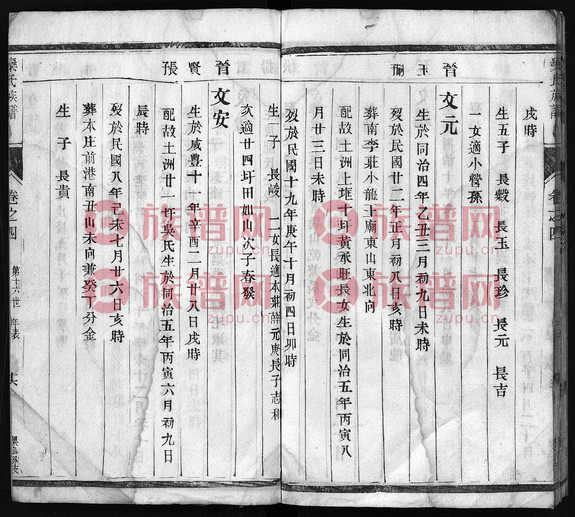 戌時
生五子 長毅 長玉 長珍 長元 長吉
一女適小營孫
晉 文元
生於同治四年乙丑三月初九日未時
歿於民國廿二年正月初八日亥時
葬南李莊小龍王廟東山東北向
配故土洲上堐十圩黃承旺長女生於同治五年丙寅八
月廿三日未時
歿於民國十九年庚午十月初四日卯時
生一子 長 二女長適本莊薛元庚長子志和
次適廿四圩田如山次子春
晉 文安
生於咸豐十一年辛酉二月廿八日戌時
配故土洲廿一圩吳氏生於同治五年丙寅六月初九日
辰時
歿於民國八年己未七月廿六日亥時
葬本庄前港南丑山未向兼癸丁分金
生一子 長貴
氏族譜
卷之四
第十六世 年表
族谱网
zupu.cn